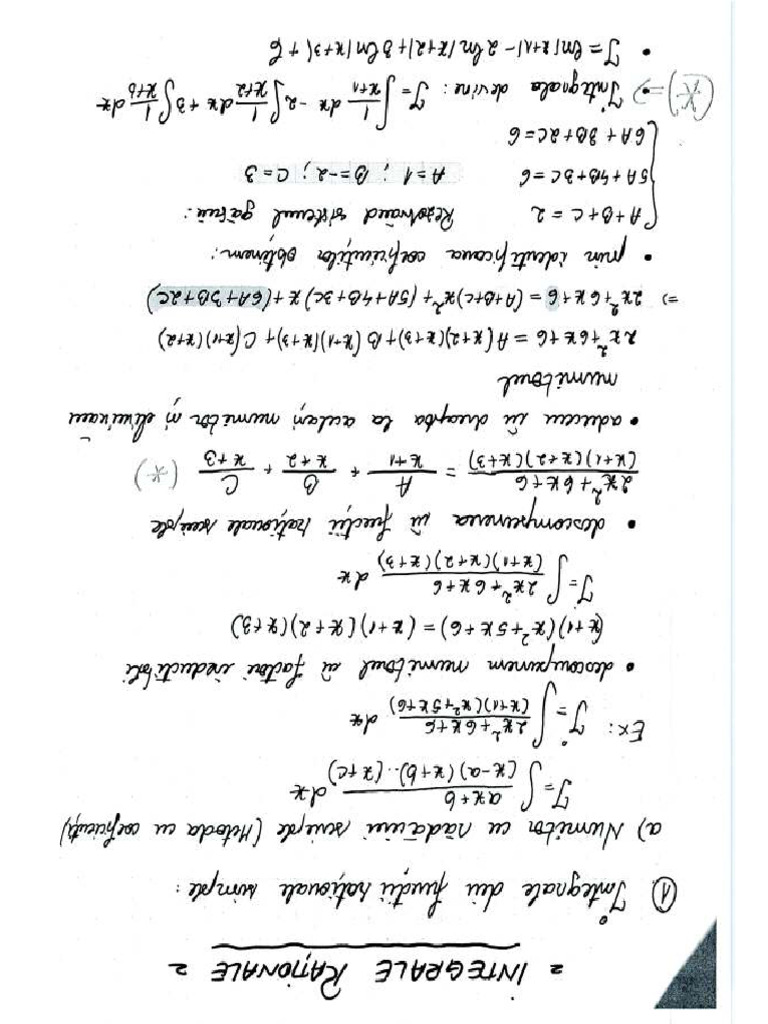 = INTEGRALE RAȚIONALE =
① Integrale din funcții raționale simple:
a) Numitor cu rădăcini simple (Metoda cu coeficienți)
J = ∫ (ax+b)/((x-a)(x+b)...(x+c)) dx
Ex: J = ∫ (2x²+6x+6)/((x+1)(x²+5x+6)) dx
• descompunem numitorul în factori ireductibili
(x+1)(x²+5x+6) = (x+1)(x+2)(x+3)
J = ∫ (2x²+6x+6)/((x+1)(x+2)(x+3)) dx
• descompunerea în funcții raționale simple
(2x²+6x+6)/((x+1)(x+2)(x+3)) = A/(x+1) + B/(x+2) + C/(x+3) (*)
• aducem în dreapta la același numitor și eliminăm
numitorul
2x²+6x+6 = A(x+2)(x+3)+B(x+1)(x+3)+C(x+1)(x+2)
=> 2x²+6x+6 = (A+B+C)x²+(5A+4B+3C)x+(6A+3B+2C)
• prin identificarea coeficienților obținem:
{ A+B+C = 2 Rezolvând sistemul găsim:
5A+4B+3C = 6 A=1 ; B=-2 ; C=3
6A+3B+2C=6
(*) => • Integrala devine: J = ∫ 1/(x+1) dx -2 ∫ 1/(x+2) dx +3 ∫ 1/(x+3) dx
• J = ln|x+1| -2 ln|x+2| + 3 ln|x+3| + C